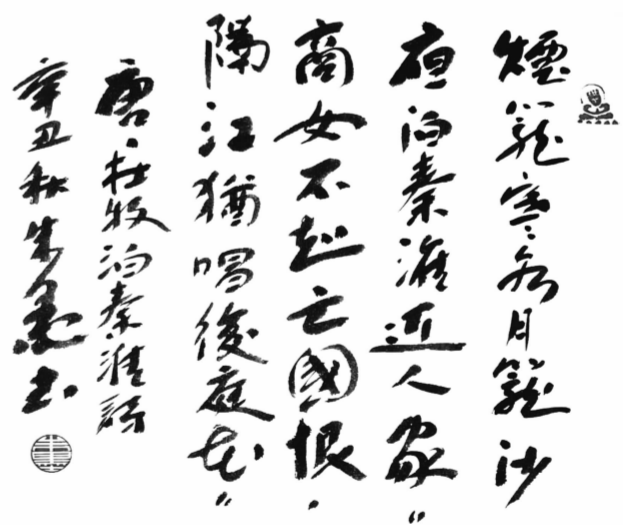 煙籠寒水月籠沙
夜泊秦淮近人家
商女不知亡國恨
隔江猶唱後庭花
唐·杜牧泊秦淮詩
辛丑秋朱書